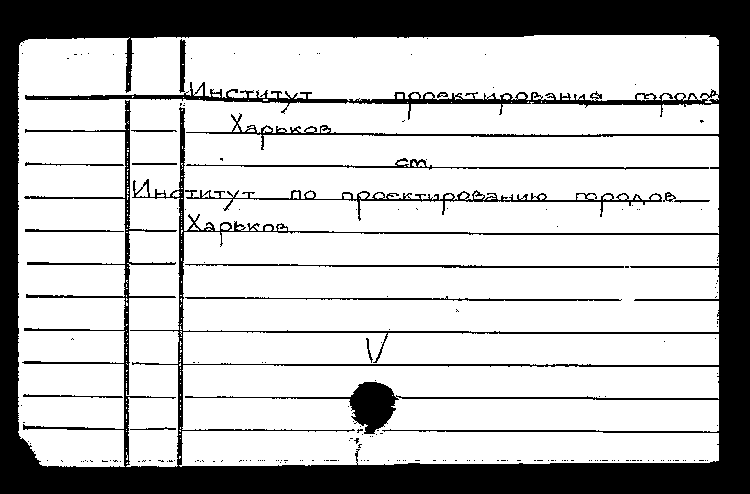 Институт проектирования городов
Харьков
см.
Институт по проектированию городов
Харьков
V